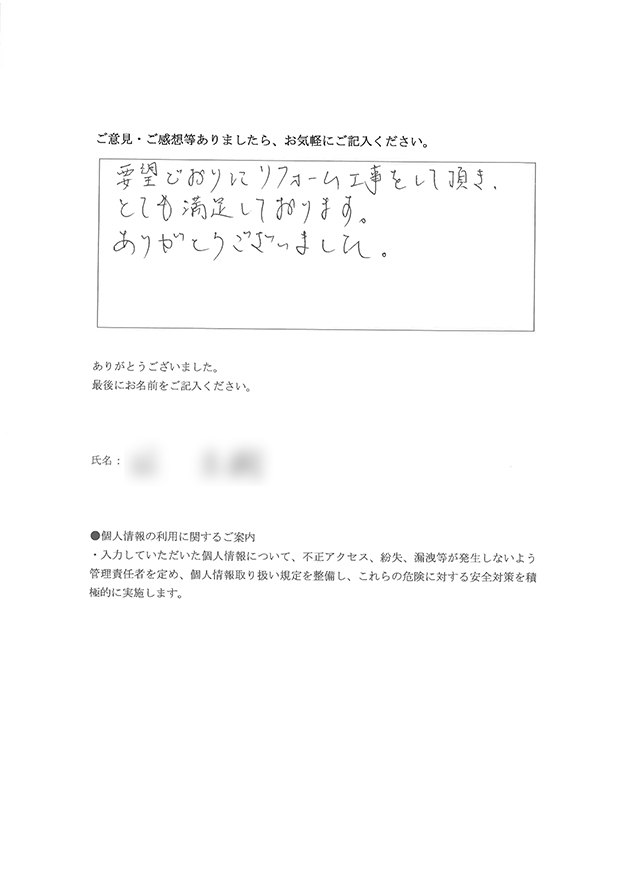 ご意見・ご感想等ありましたら、お気軽にご記入ください。
要望どおりにリフォーム工事をして頂き、
とても満足しております。
ありがとうございました。
ありがとうございました。
最後にお名前をご記入ください。
氏名：
●個人情報の利用に関するご案内
・入力していただいた個人情報について、不正アクセス、紛失、漏洩等が発生しないよう
管理責任者を定め、個人情報取り扱い規定を整備し、これらの危険に対する安全対策を積
極的に実施します。